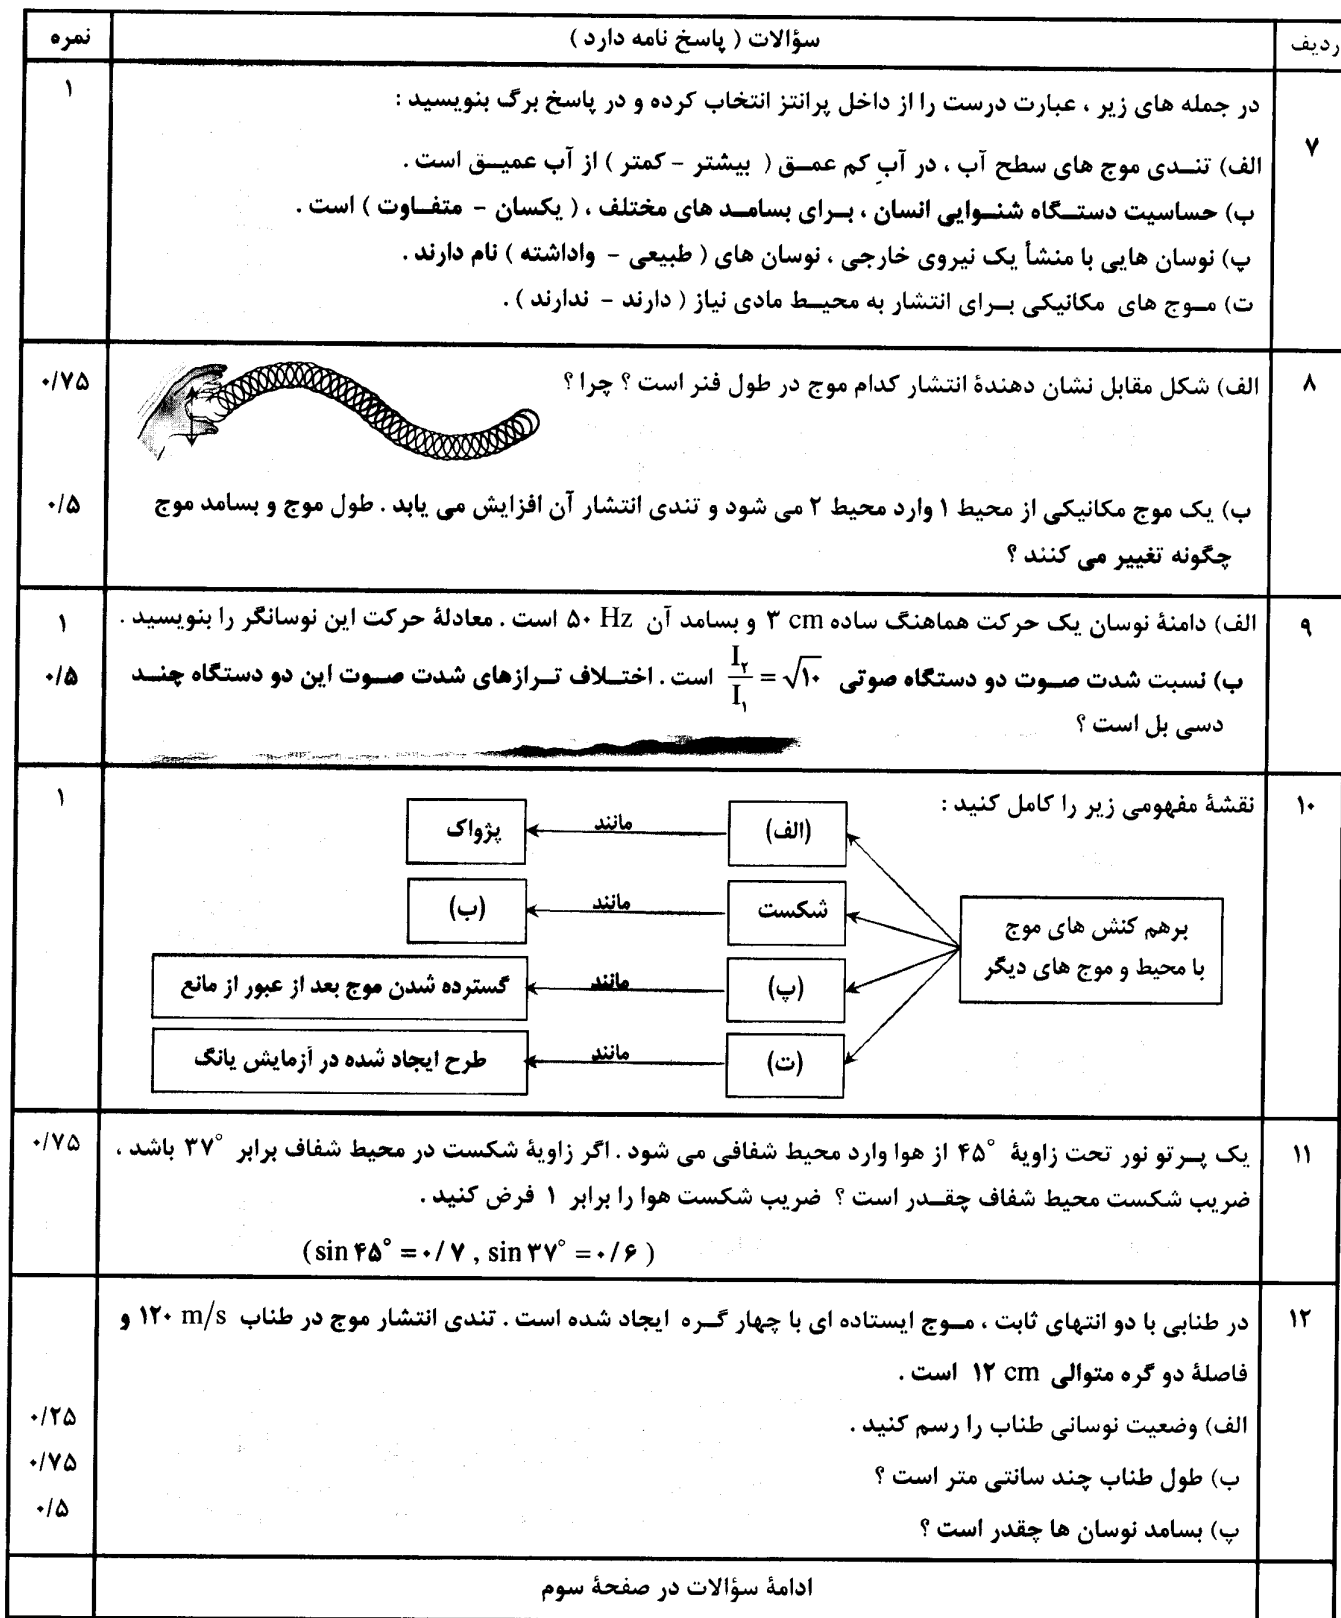 ردیف سؤالات ( پاسخ نامه دارد ) نمره
۷ در جمله های زیر ، عبارت درست را از داخل پرانتز انتخاب کرده و در پاسخ برگ بنویسید : ۱
الف) تنــدی موج های سطح آب ، در آبِ کم عمــق ( بیشتر - کمتر ) از آب عمیــق است .
ب) حساسیت دستــگاه شنــوایی انسان ، بــرای بسامــد های مختلف ، ( یکسان - متفــاوت ) است .
پ) نوسان هایی با منشأ یک نیروی خارجی ، نوسان های ( طبیعی - واداشته ) نام دارند .
ت) مــوج های مکانیکی بــرای انتشار به محیــط مادی نیاز ( دارند - ندارند ) .
۸ الف) شکل مقابل نشان دهندۀ انتشار کدام موج در طول فنر است ؟ چرا ؟ ۰/۷۵
ب) یک موج مکانیکی از محیط ۱ وارد محیط ۲ می شود و تندی انتشار آن افزایش می یابد . طول موج و بسامد موج ۰/۵
چگونه تغییر می کنند ؟
۹ الف) دامنۀ نوسان یک حرکت هماهنگ ساده ۳ cm و بسامد آن ۵۰ Hz است . معادلۀ حرکت این نوسانگر را بنویسید . ۱
ب) نسبت شدت صــوت دو دستگاه صوتی I₂/I₁ = √۱۰ است . اختــلاف تــرازهای شدت صــوت این دو دستگاه چنــد ۰/۵
دسی بل است ؟
۱۰ نقشۀ مفهومی زیر را کامل کنید : ۱
(الف) مانند پژواک
شکست مانند (ب)
برهم کنش های موج
با محیط و موج های دیگر
(پ) مانند گسترده شدن موج بعد از عبور از مانع
(ت) مانند طرح ایجاد شده در آزمایش یانگ
۱۱ یک پــرتو نور تحت زاویۀ ۴۵° از هوا وارد محیط شفافی می شود . اگر زاویۀ شکست در محیط شفاف برابر ۳۷° باشد ، ۰/۷۵
ضریب شکست محیط شفاف چقــدر است ؟ ضریب شکست هوا را برابر ۱ فرض کنید .
(sin ۴۵° = ۰/۷ , sin ۳۷° = ۰/۶ )
۱۲ در طنابی با دو انتهای ثابت ، مــوج ایستاده ای با چهار گــره ایجاد شده است . تندی انتشار موج در طناب ۱۲۰ m/s و
فاصلۀ دو گره متوالی ۱۲ cm است .
الف) وضعیت نوسانی طناب را رسم کنید . ۰/۲۵
ب) طول طناب چند سانتی متر است ؟ ۰/۷۵
پ) بسامد نوسان ها چقدر است ؟ ۰/۵
ادامۀ سؤالات در صفحۀ سوم